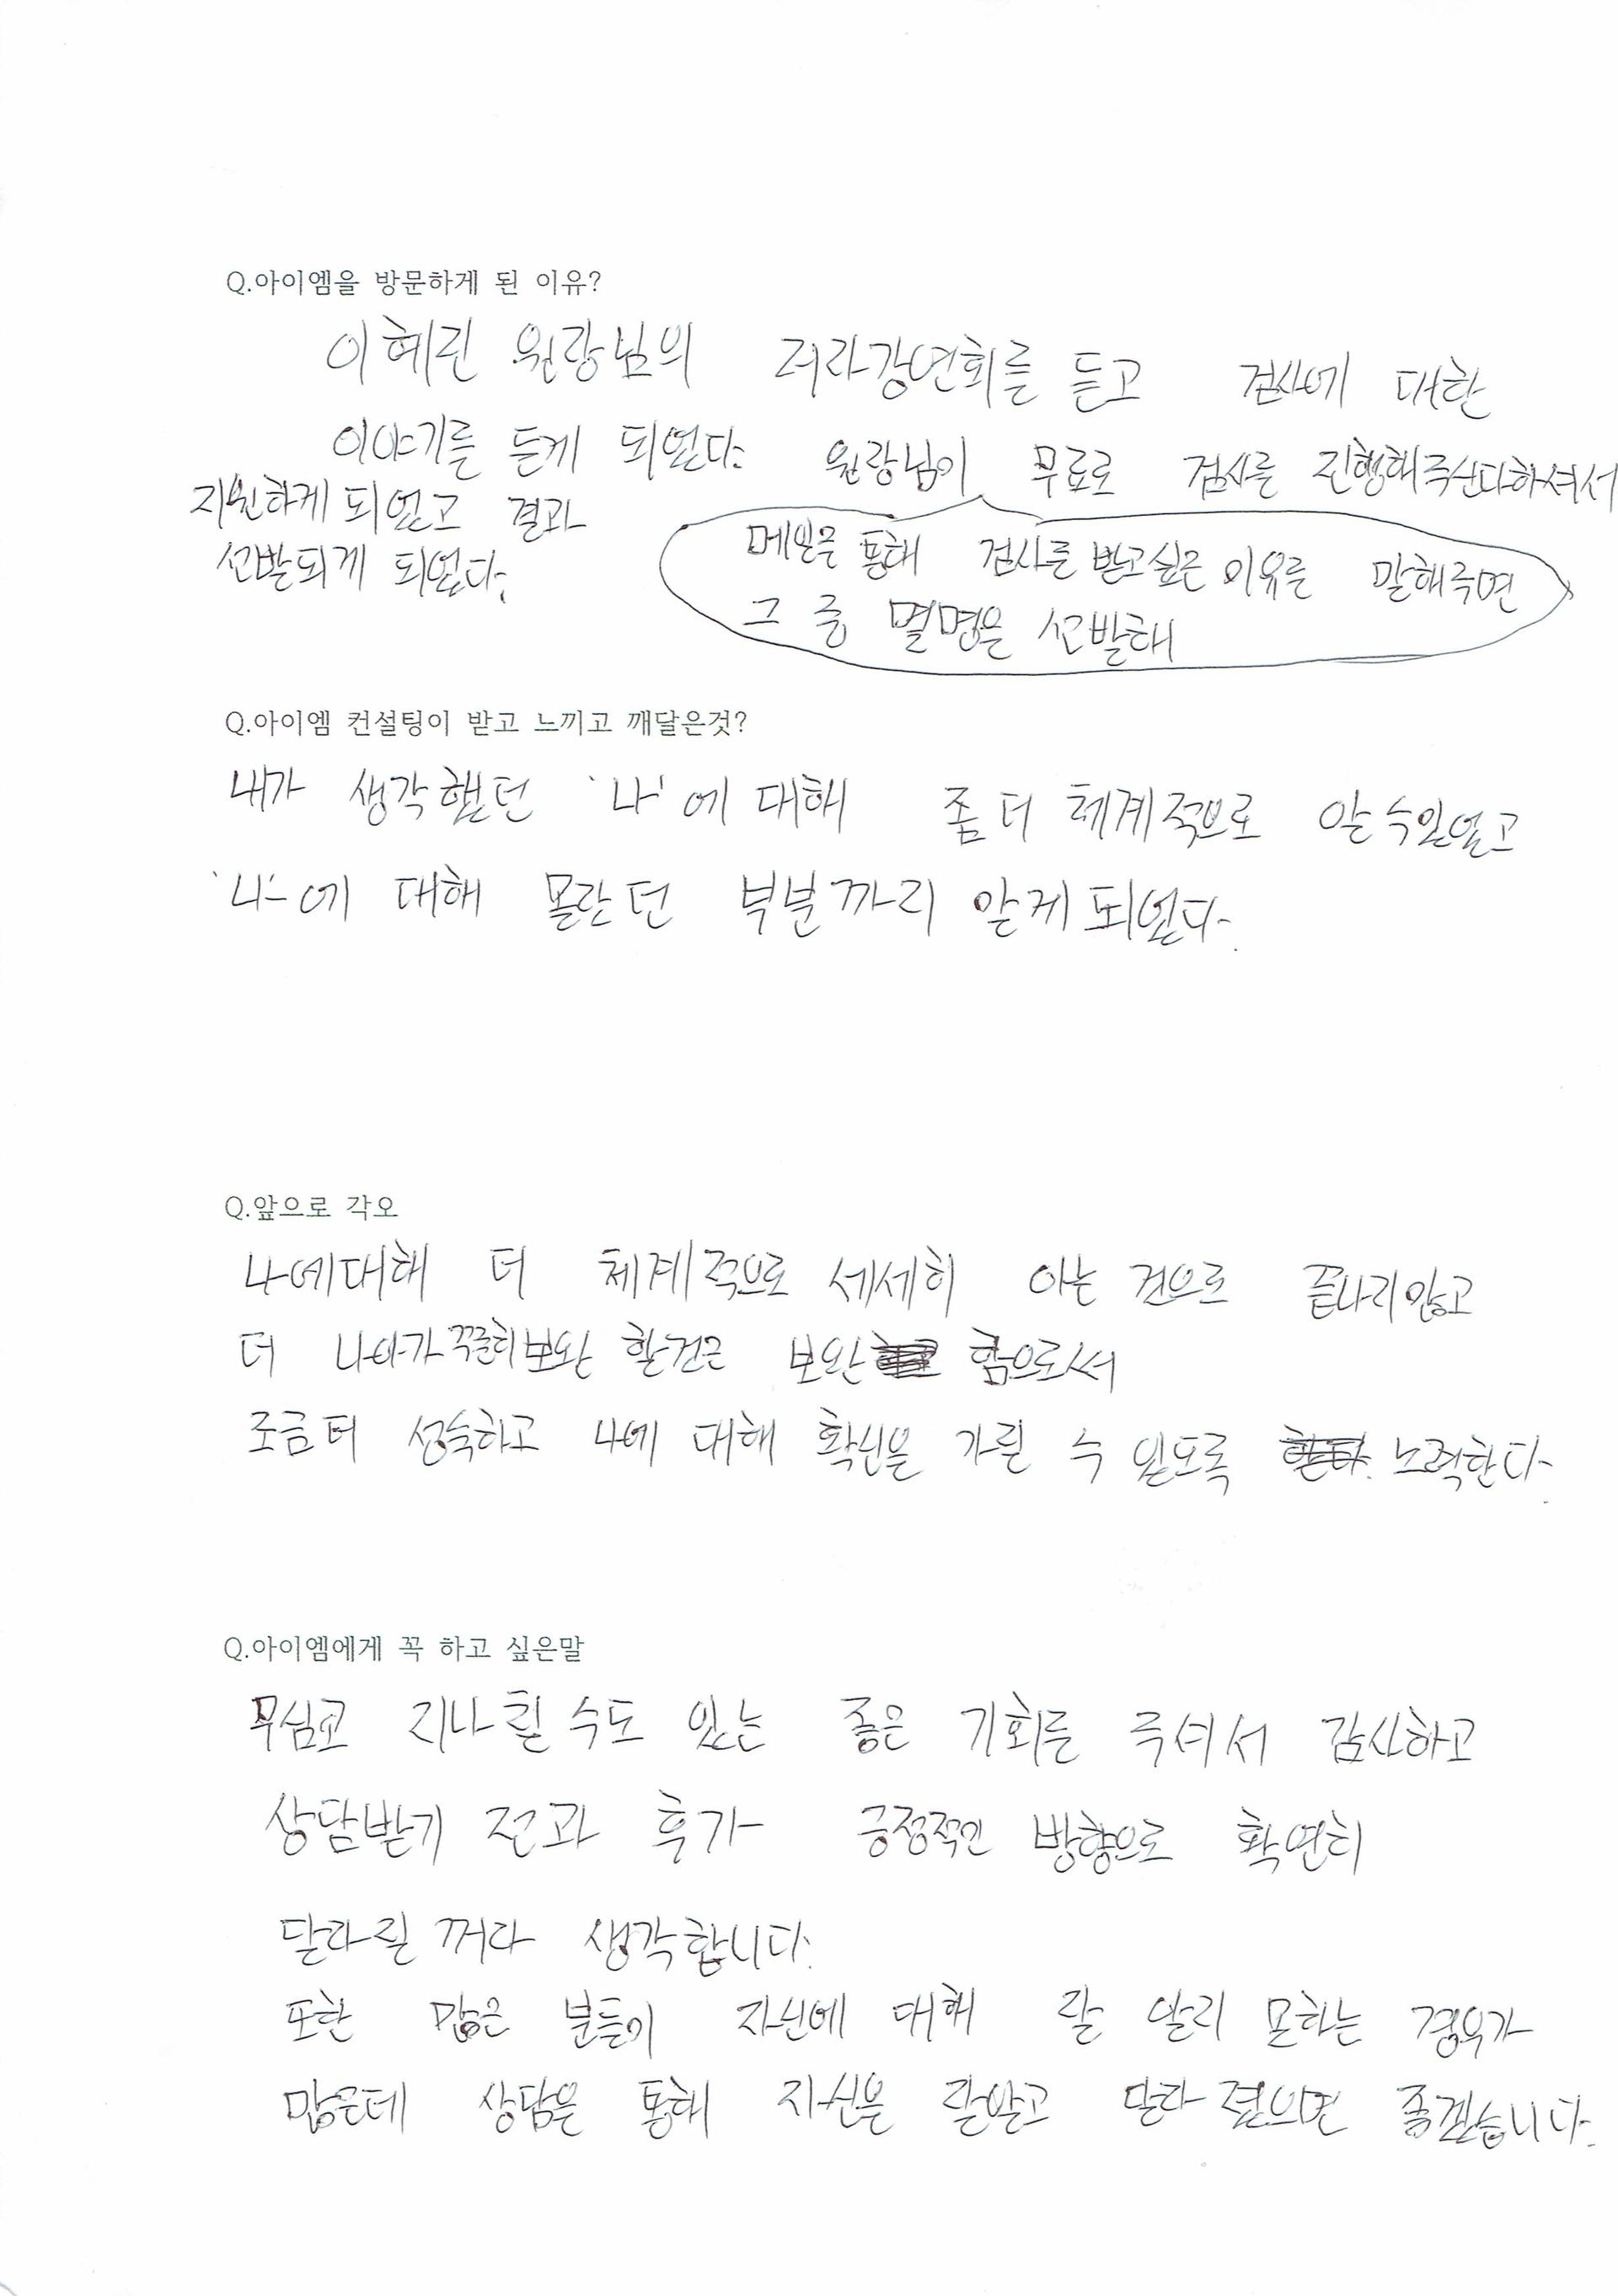 Q.아이엠을 방문하게 된 이유?
이혜린 원장님의 저자강연회를 듣고 검사에 대한
이야기를 듣게 되었다. 원장님이 무료로 검사를 진행해주신다하셔서
메일을 통해 검사를 받고싶은 이유를 말해주면
그 중 몇명은 선발해
지원하게 되었고 결과
선발되게 되었다.
Q.아이엠 컨설팅이 받고 느끼고 깨달은것?
내가 생각했던 '나'에 대해 좀 더 체계적으로 알 수있었고
'나'에 대해 몰랐던 부분까지 알게 되었다.
Q.앞으로 각오
나에대해 더 체계적으로 세세히 아는 것으로 끝나지않고
더 나아가 꾸준히 보완 할건은 보완 함으로서
조금더 성숙하고 나에 대해 확신을 가질 수 있도록 노력한다.
Q.아이엠에게 꼭 하고 싶은말
무심코 지나칠 수도 있는 좋은 기회를 주셔서 감사하고
상담받기 전과 후가 긍정적인 방향으로 확연히
달라질 꺼라 생각합니다.
또한 많은 분들이 자신에 대해 잘 알지 못하는 경우가
많은데 상담을 통해 자신을 잘알고 달라 졌으면 좋겠습니다.